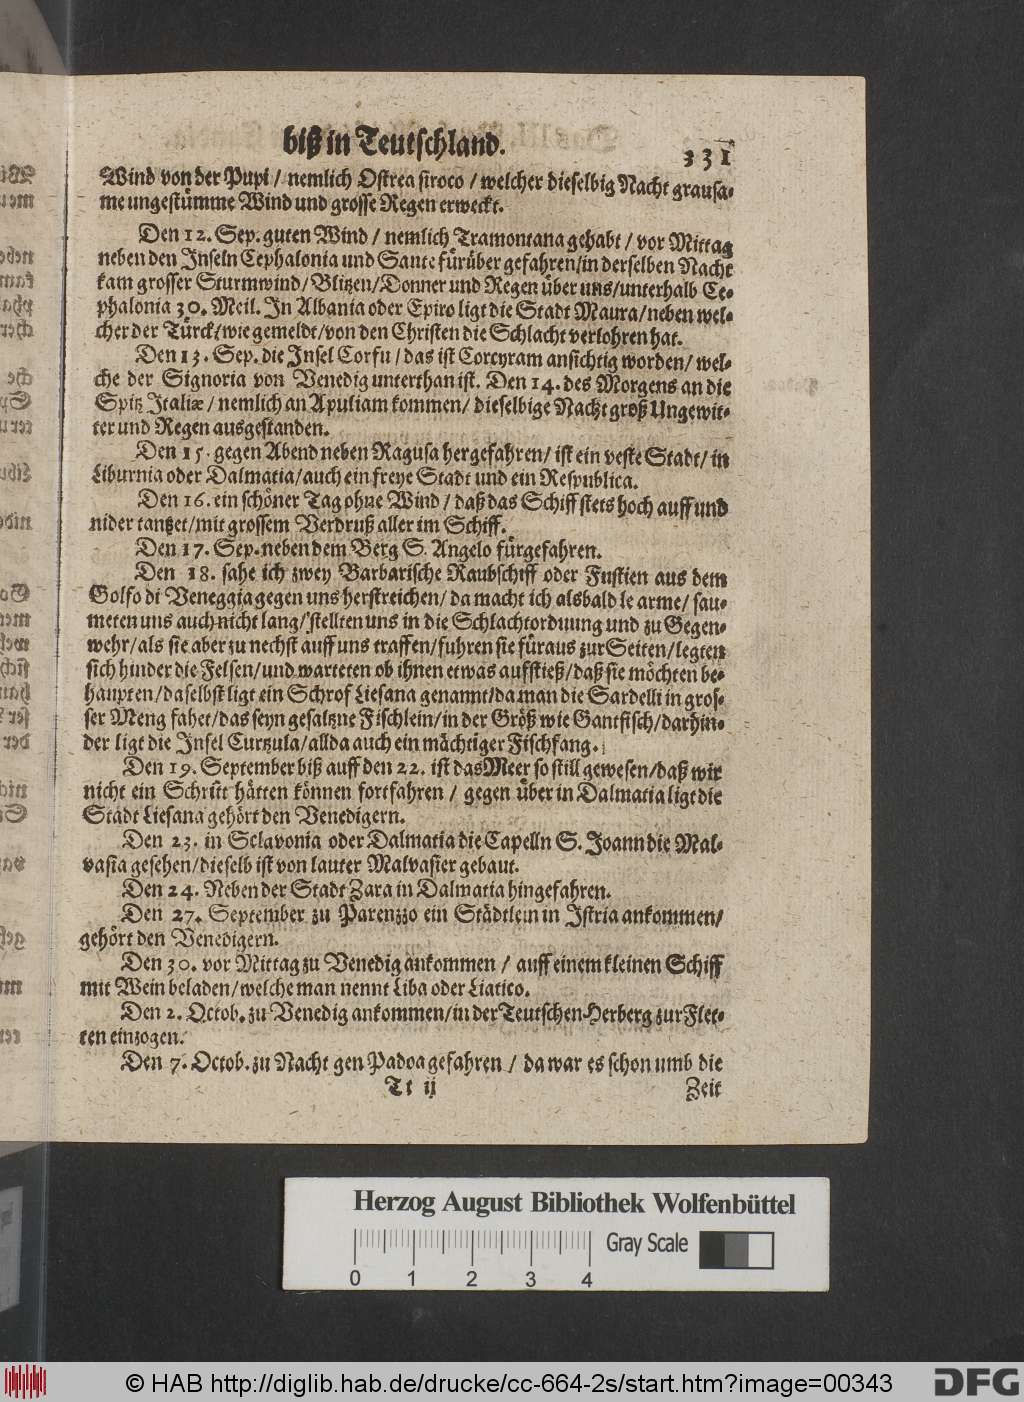 biß in Teutschland.
331
Wind von der Pupi / nemlich Ostrea siroco / welcher dieselbig Nacht grausa-
me ungestümme Wind und grosse Regen erweckt.
Den 12. Sep. guten Wind / nemlich Tramontana gehabt / vor Mittag
neben den Inseln Cephalonia und Sante fürüber gefahren/in derselben Nacht
kam grosser Sturmwind/Blitzen/Donner und Regen über uns/unterhalb Ce-
phalonia 30. Meil. In Albania oder Epiro ligt die Stadt Maura/neben wel-
cher der Türck/wie gemeldt/von den Christen die Schlacht verlohren hat.
Den 13. Sep. die Insel Corfu / das ist Corcyram ansichtig worden/ wel-
che der Signoria von Venedig unterthan ist. Den 14. des Morgens an die
Spitz Italiæ / nemlich an Apuliam kommen/ dieselbige Nacht groß Ungewit-
ter und Regen ausgestanden.
Den 15. gegen Abend neben Ragusa hergefahren/ ist ein veste Stadt/ in
Liburnia oder Dalmatia/auch ein freye Stadt und ein Respublica.
Den 16. ein schöner Tag ohne Wind / daß das Schiff stets hoch auff und
nider tantzet/mit grossem Verdruß aller im Schiff.
Den 17. Sep. neben dem Berg S. Angelo fürgefahren.
Den 18. sahe ich zwey Barbarische Raubschiff oder Fustien aus dem
Golfo di Veneggia gegen uns herstreichen/ da macht ich alsbald le arme/ sau-
meten uns auch nicht lang/ stellten uns in die Schlachtordnung und zu Gegen-
wehr/als sie aber zu nechst auff uns traffen/fuhren sie füraus zur Seiten/legten
sich hinder die Felsen/und warteten ob ihnen etwas aufstieß/daß sie möchten be-
haupten/daselbst ligt ein Schrof Liesana genannt/da man die Sardelli in gros-
ser Meng fahet/das seyn gesaltzne Fischlein/in der Größ wie Gantfisch/darhin-
der ligt die Insel Curtzula/allda auch ein mächtiger Fischfang.
Den 19. September biß auff den 22. ist das Meer so still gewesen/daß wir
nicht ein Schritt hätten können fortfahren / gegen über in Dalmatia ligt die
Stadt Liesana gehört den Venedigern.
Den 23. in Sclavonia oder Dalmatia die Capelln S. Joann die Mal-
vasia gesehen/dieselb ist von lauter Malvasier gebaut.
Den 24. Neben der Stadt Zara in Dalmatia hingefahren.
Den 27. September zu Parenzzo ein Städtlein in Istria ankommen/
gehört den Venedigern.
Den 30. vor Mittag zu Venedig ankommen / auff einem kleinen Schiff
mit Wein beladen/welche man nennt Liba oder Liatico.
Den 2. Octob. zu Venedig ankommen/in der Teutschen Herberg zur Flet-
ten einzogen.
Den 7. Octob. zu Nacht gen Padoa gefahren / da war es schon umb die
Tt ij
Zeit
Herzog August Bibliothek Wolfenbüttel
Gray Scale
0 1 2 3 4
© HAB http://diglib.hab.de/drucke/cc-664-2s/start.htm?image=00343
DFG